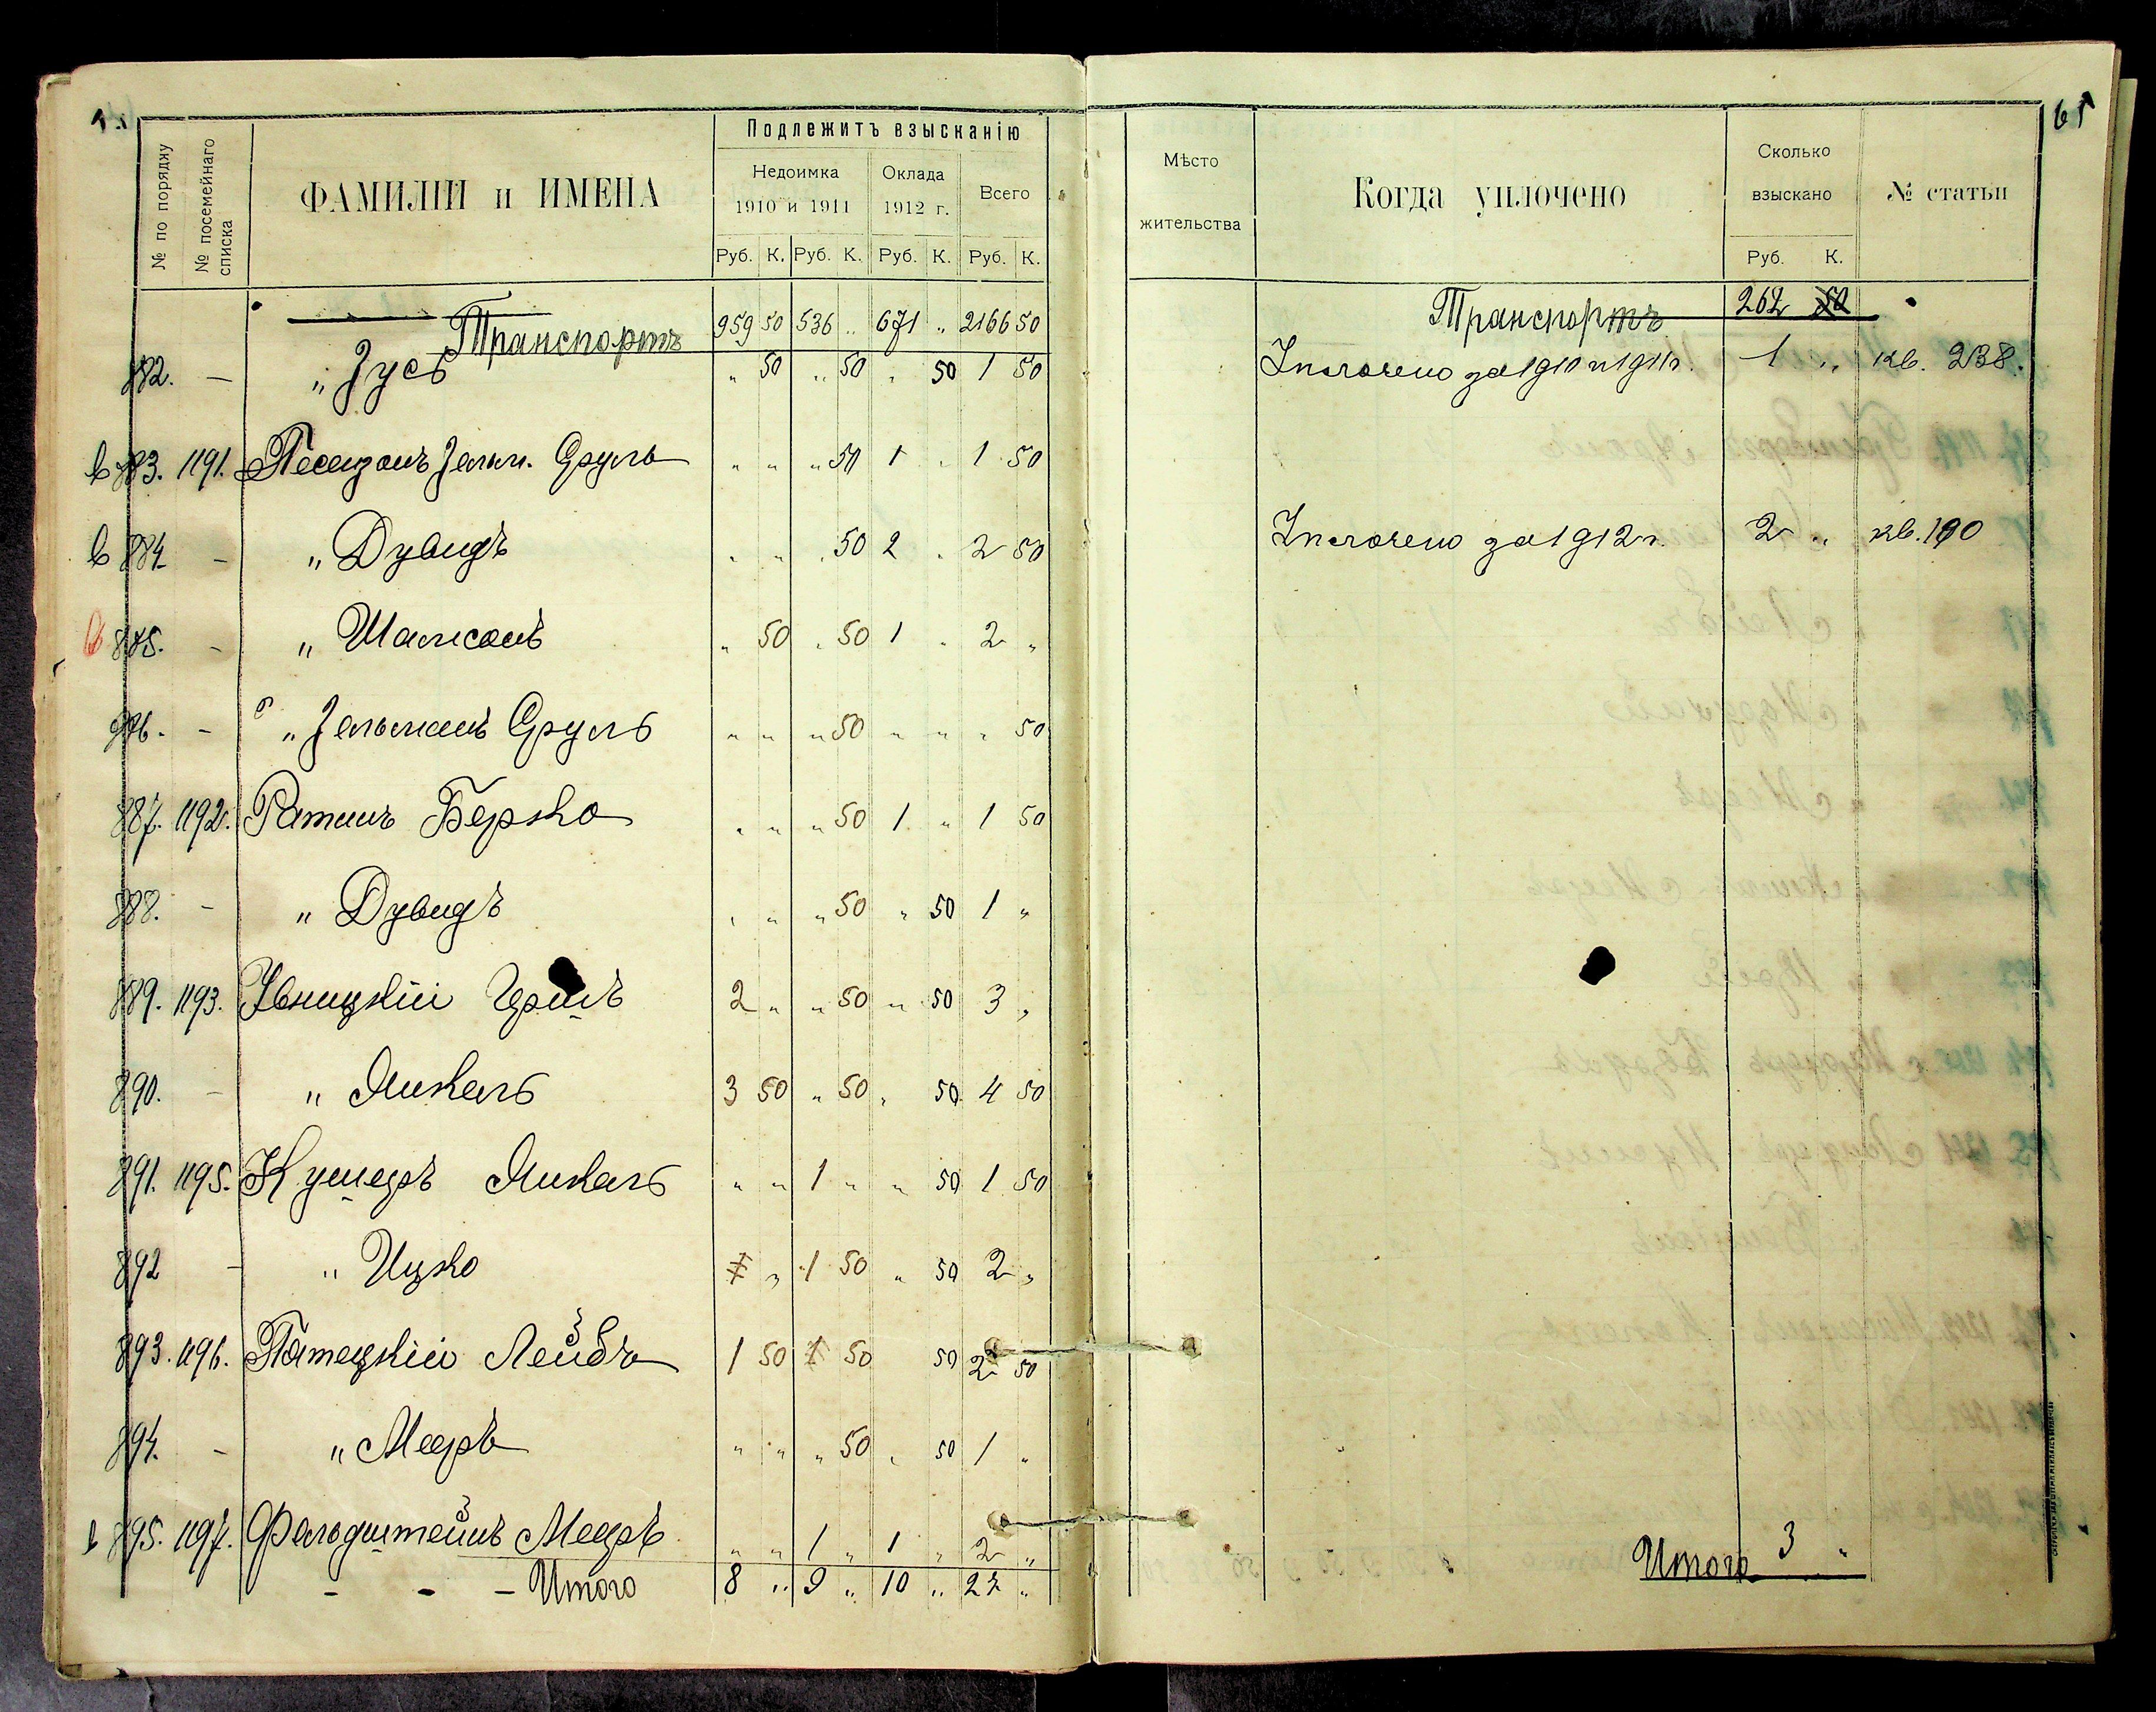 61
Подлежитъ взысканію
№ по порядку
№ посемейнаго списка
ФАМИЛІИ и ИМЕНА
Недоимка 1910 и 1911
Оклада 1912 г.
Всего
Руб. К. Руб. К. Руб. К. Руб. К.
Мѣсто жительства
Когда уплочено
Сколько взыскано
Руб. К.
№ статьи
Транспортъ 959 50 536 „ 671 „ 2166 50 Транспортъ 262 50
882. — „ Зусь „ 50 „ 50 „ 50 1 50 Уплочено за 1910 и 1911 г. 1 „ кв. 238.
883. 1191. Зельм. Сруль „ „ „ 50 1 „ 1 50
884 — „ Дувидъ „ „ „ 50 2 „ 2 50 Уплочено за 1912 г. 2 „ кв. 190
885. — „ Шамсонъ „ 50 „ 50 1 „ 2 „
886. — „ Зельманъ Сруль „ „ „ 50 „ „ „ 50
887. 1192. Ратинъ Берко „ „ „ 50 1 „ 1 50
888. — „ Дувидъ „ „ „ 50 „ 50 1 „
889. 1193. 2 „ „ 50 „ 50 3 „
890. — „ Михель 3 50 „ 50 „ 50 4 50
891. 1195. Кушеръ Михель „ „ 1 „ „ 50 1 50
892 — „ Ицко „ 1 50 „ 50 2 „
893. 1196. Патецкій Лейба 1 50 50 50 2 50
894. — „ Мееръ „ „ „ 50 „ 50 1 „
895. 1197. Фельдштейнъ Мееръ „ „ 1 „ 1 „ 2 „
- - - Итого 8 „ 9 „ 10 „ 27 „ Итого 3 „